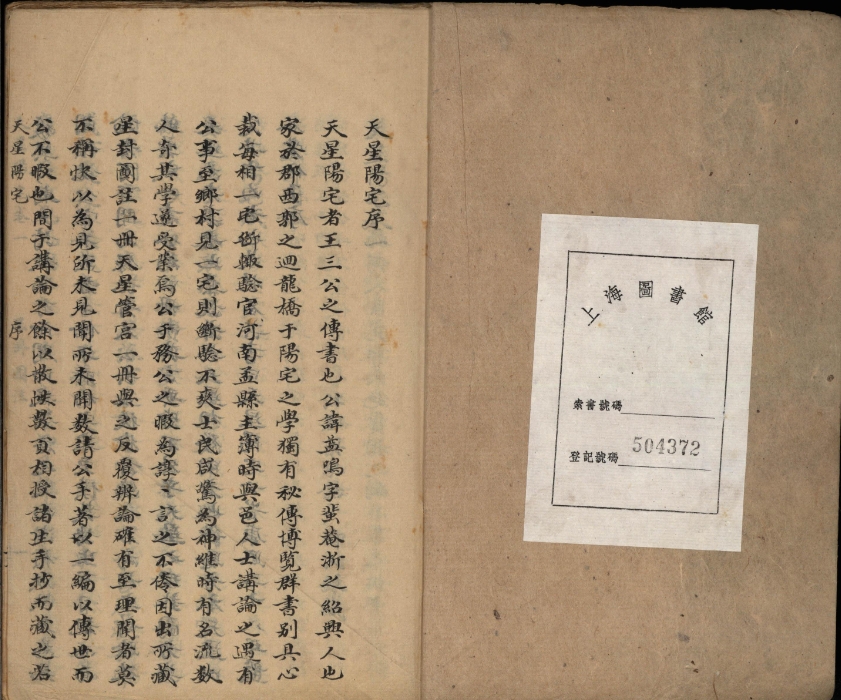 上海圖書館
索書號碼
登記號碼 504372
天星陽宅序
天星陽宅者王三公之傳書也公諱蓝鳴字蜚菴浙之紹興人也
家於郡西郭之迴龍橋于陽宅之學獨有秘傳博覽群書别具心
裁每相一宅斷輙驗官河南孟縣主簿時與邑人士講論之遇有
公事至鄉村見一宅則斷驗不爽士民咸驚為神維時有名流数
人奇其學遂受業焉公于務公之暇為諄〻言之不倦因出所藏
星封圖註一冊天星管官一冊與之反覆辨論確有至理聞者莫
不稱快以為見所未見聞所未聞数請公手著以一編以傳世而
公不暇也間于講論之餘以散帙数頁相授諸生手抄而藏之若
天星陽宅 序